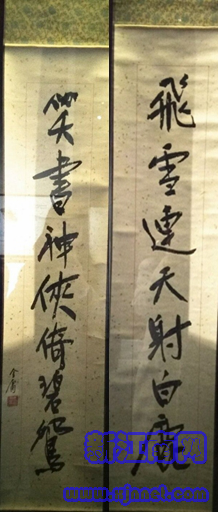 飛雪連天射白鹿
笑書神俠倚碧鴛
金庸
新江南网
www.xjnnet.com